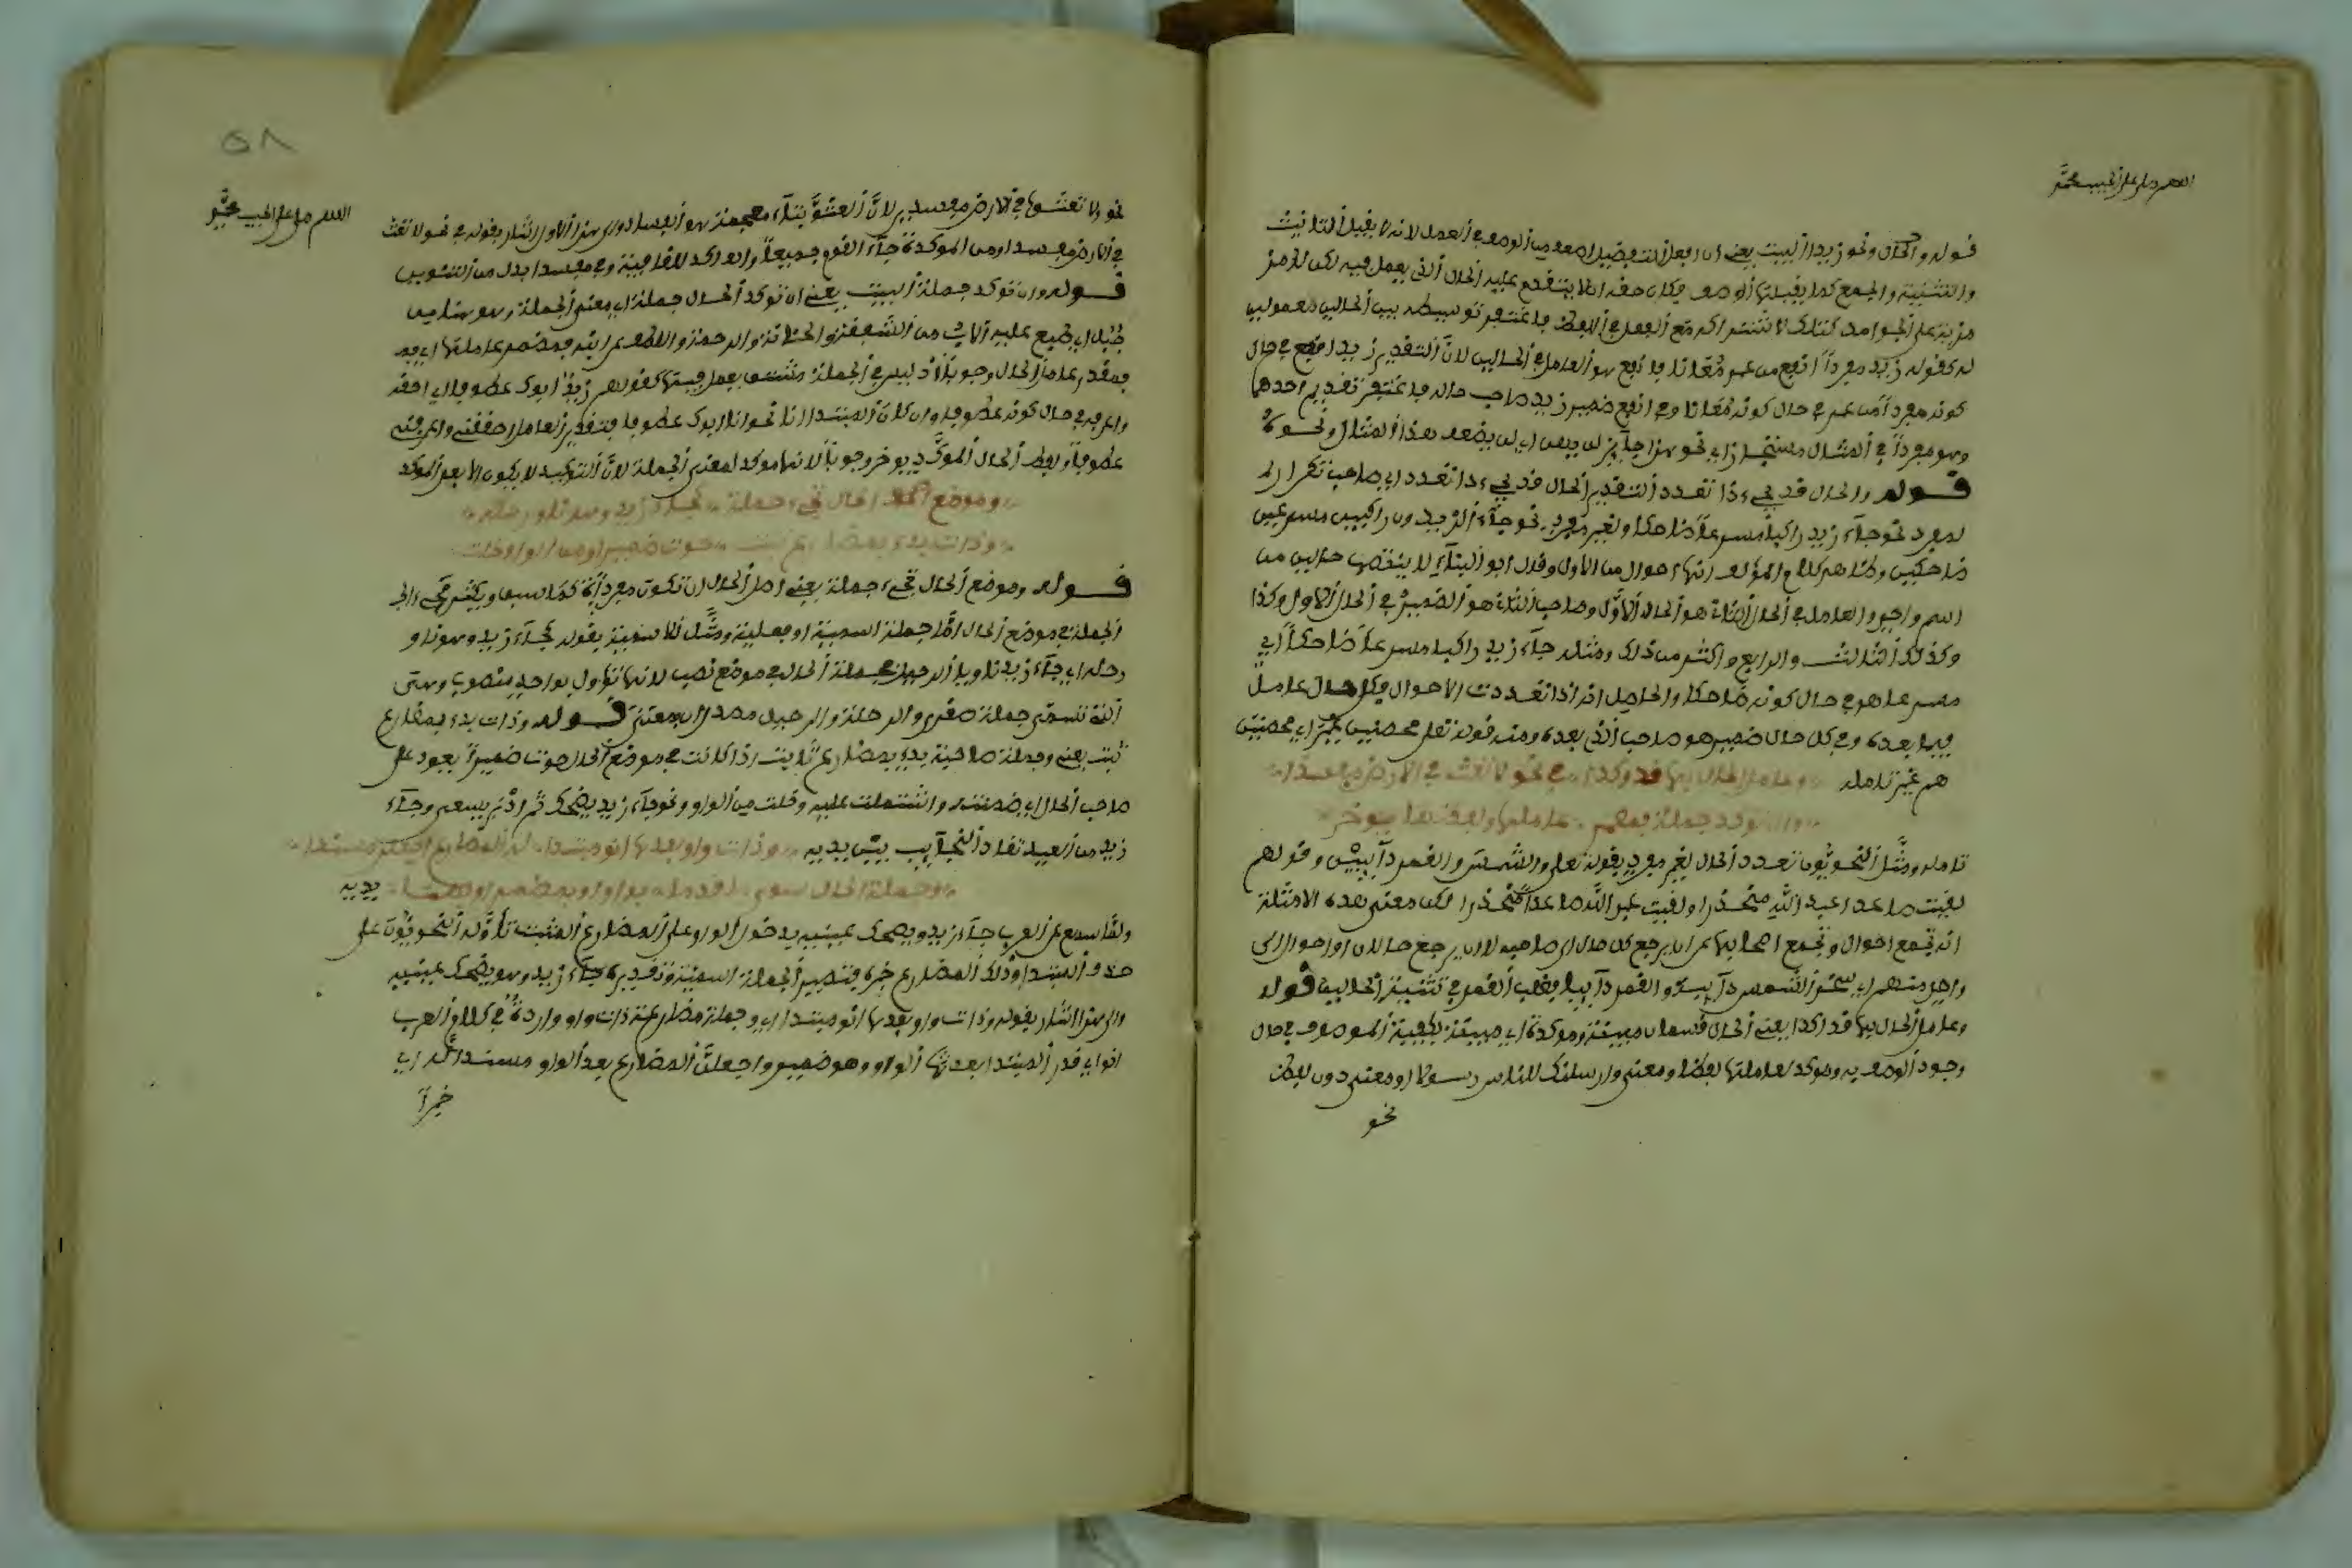 اللهم صل على الحبيب محمد
قوله والحال ونحو زيد البيت يعني ان افعل التفضيل اضعف من الوصف في العمل لانه لا يقبل التانيث
والتثنية والجمع كما يقبلها الوصف فكان حقه ان لا يتقدم عليه الحال الذي يعمل فيه لكن له مز
مزية على الجوامد
له كقوله زيد مفردا انفع من عمرو معانا فانفع هو العامل في الحالين لان التقدير زيد انفع في حال
كونه مفردا من عمرو في حال كونه معانا وفي انفع ضمير زيد صاحب حاله فاغتفر تقديم احدهما
وهو مفردا في المثال مستجاز اي نحو هذا جايز لن يهن اي لن يضعف هذا المثال ونحوه
قوله والحال قد يجيء ذا تعدد التقدير الحال قد يجيء ذا تعدد اي صاحب تكرار لمـ
لمفرد نحو جاء زيد راكبا مسرعا ضاحكا ولغير مفرد نحو جاء الزيدون راكبين مسرعين
ضاحكين وظاهر كلام المؤلف انها احوال من الاول وقال ابو البقاء لا ينتصب حالين من
اسم واحد والعامل في الحال الثانية هو الحال الاول وصاحب الثانية هو الضمير في الحال الاول وكذا
وكذلك الثالث والرابع واكثر من ذلك ومثله جاء زيد راكبا مسرعا ضاحكا اي
مسرعا هو في حال كونه ضاحكا والحاصل انه اذا تعددت الاحوال فكل حال عامل
فيما بعده وفي كل حال ضمير هو صاحب الذي بعده ومنه قوله تعلى محصنين غير اي محصنين
هم غير تامله وعامل الحال بها قد اكدا في نحو لا تعث في الارض مفسدا
وان توكد جملة فمضمر عاملها ولفظها يوخر
تامله ومثل النحويون تعدد الحال لغير مفرد بقوله تعلى والشمس والقمر دآيبين وقولهم
لقيت صاعدا عبد الله منحدرا ولقيت عبد الله صاعدا منحدرا لكن معنى هذه الامثلة
انه تجمع احوال وتجمع اصحابها
واحد منهم اي سخر الشمس دآيبة والقمر دآيبا فغلب القمر في تثنية الحاليا قوله
وعامل الحال بها قد اكدا يعني الحال قسمان مبينة وموكدة اي مبينة كيفية الموصوف في حال
وجود الوصف به وموكد لعاملها لفظا ومعنى وارسلناك للناس رسولا او معنى دون لفظ
نحو
٥٨
اللهم صل على الحبيب محمد
نحو ولا تعثوا في الارض مفسدين لان العثو بثاء معجمة هو الفساد والى هذا الاول اشار بقوله في نحو لا تعث
في الارض مفسدا ومن الموكدة جاء القوم جميعا
قوله وان توكد جملة البيت يعني ان توكد الحال جملة اي معنى الجملة
فيقدر عامل الحال وجوبا اذ ليس في الجملة شيء يعمل فيها كقولهم زيد ابوك عطوفا اي احقه
واعرفه في حال كونه عطوفا وان كان المبتدا انا نحو انا ابوك عطوفا فتقدير العامل احققني واعرفني
عطوفا ولفظ الحال الموكد يوخر وجوبا لانها موكد لمعنى الجملة لان التوكيد لا يكون الا بعد الموكد
وموضع الحال تجيء جملة كجاء زيد وهو ناو رحله
وذات بدء بمضارع ثبت حوت ضميرا ومن الواو خلت
قوله وموضع الحال تجيء جملة يعني اصل الحال ان تكون مفردا كما سبق ويكثر مجيء الـ
الجملة في موضع الحال اما جملة اسمية او فعلية ومثل للاسمية بقوله كجاء زيد وهو ناو
رحله اي جاء زيد ناويا الرحيل فجملة الحال في موضع نصب لانها تؤول بواحد منصوب وهي
التي تسمى جملة صغرى والرحلة والرحيل مصدران بمعنى قوله وذات بدء بمضارع
ثبت يعني وجملة صاحبة بدء بمضارع ثابت اذا كانت في موضع الحال حوت ضميرا يعود على
صاحب الحال اي ضمته واشتملت عليه وخلت من الواو ونحو جاء زيد يضحك ثم ادبر يسعى وجاء
زيد من العيد تقاد النجآيب بين يديه وذات واو بعدها انو مبتدا له المضارع اجعلن مسندا
وجملة الحال سوى ما قدما بواو او بمضمر او بهما يديه
ولما سمع من العرب جاء زيد ويضحك عينيه بدخول الواو على المضارع المثبت تاوله النحويون على
حذف المبتدا وذلك المضارع خبره فتصير الجملة اسمية وتقديره جاء زيد وهو يضحك عينيه
والى هذا اشار بقوله وذات واو بعدها انو مبتدا اي وجملة مضارعة ذات واو واردة في كلام العرب
انو اي قدر المبتدا بعد تلك الواو وهو ضمير واجعلن المضارع بعد الواو مسندا له اي
خبرا